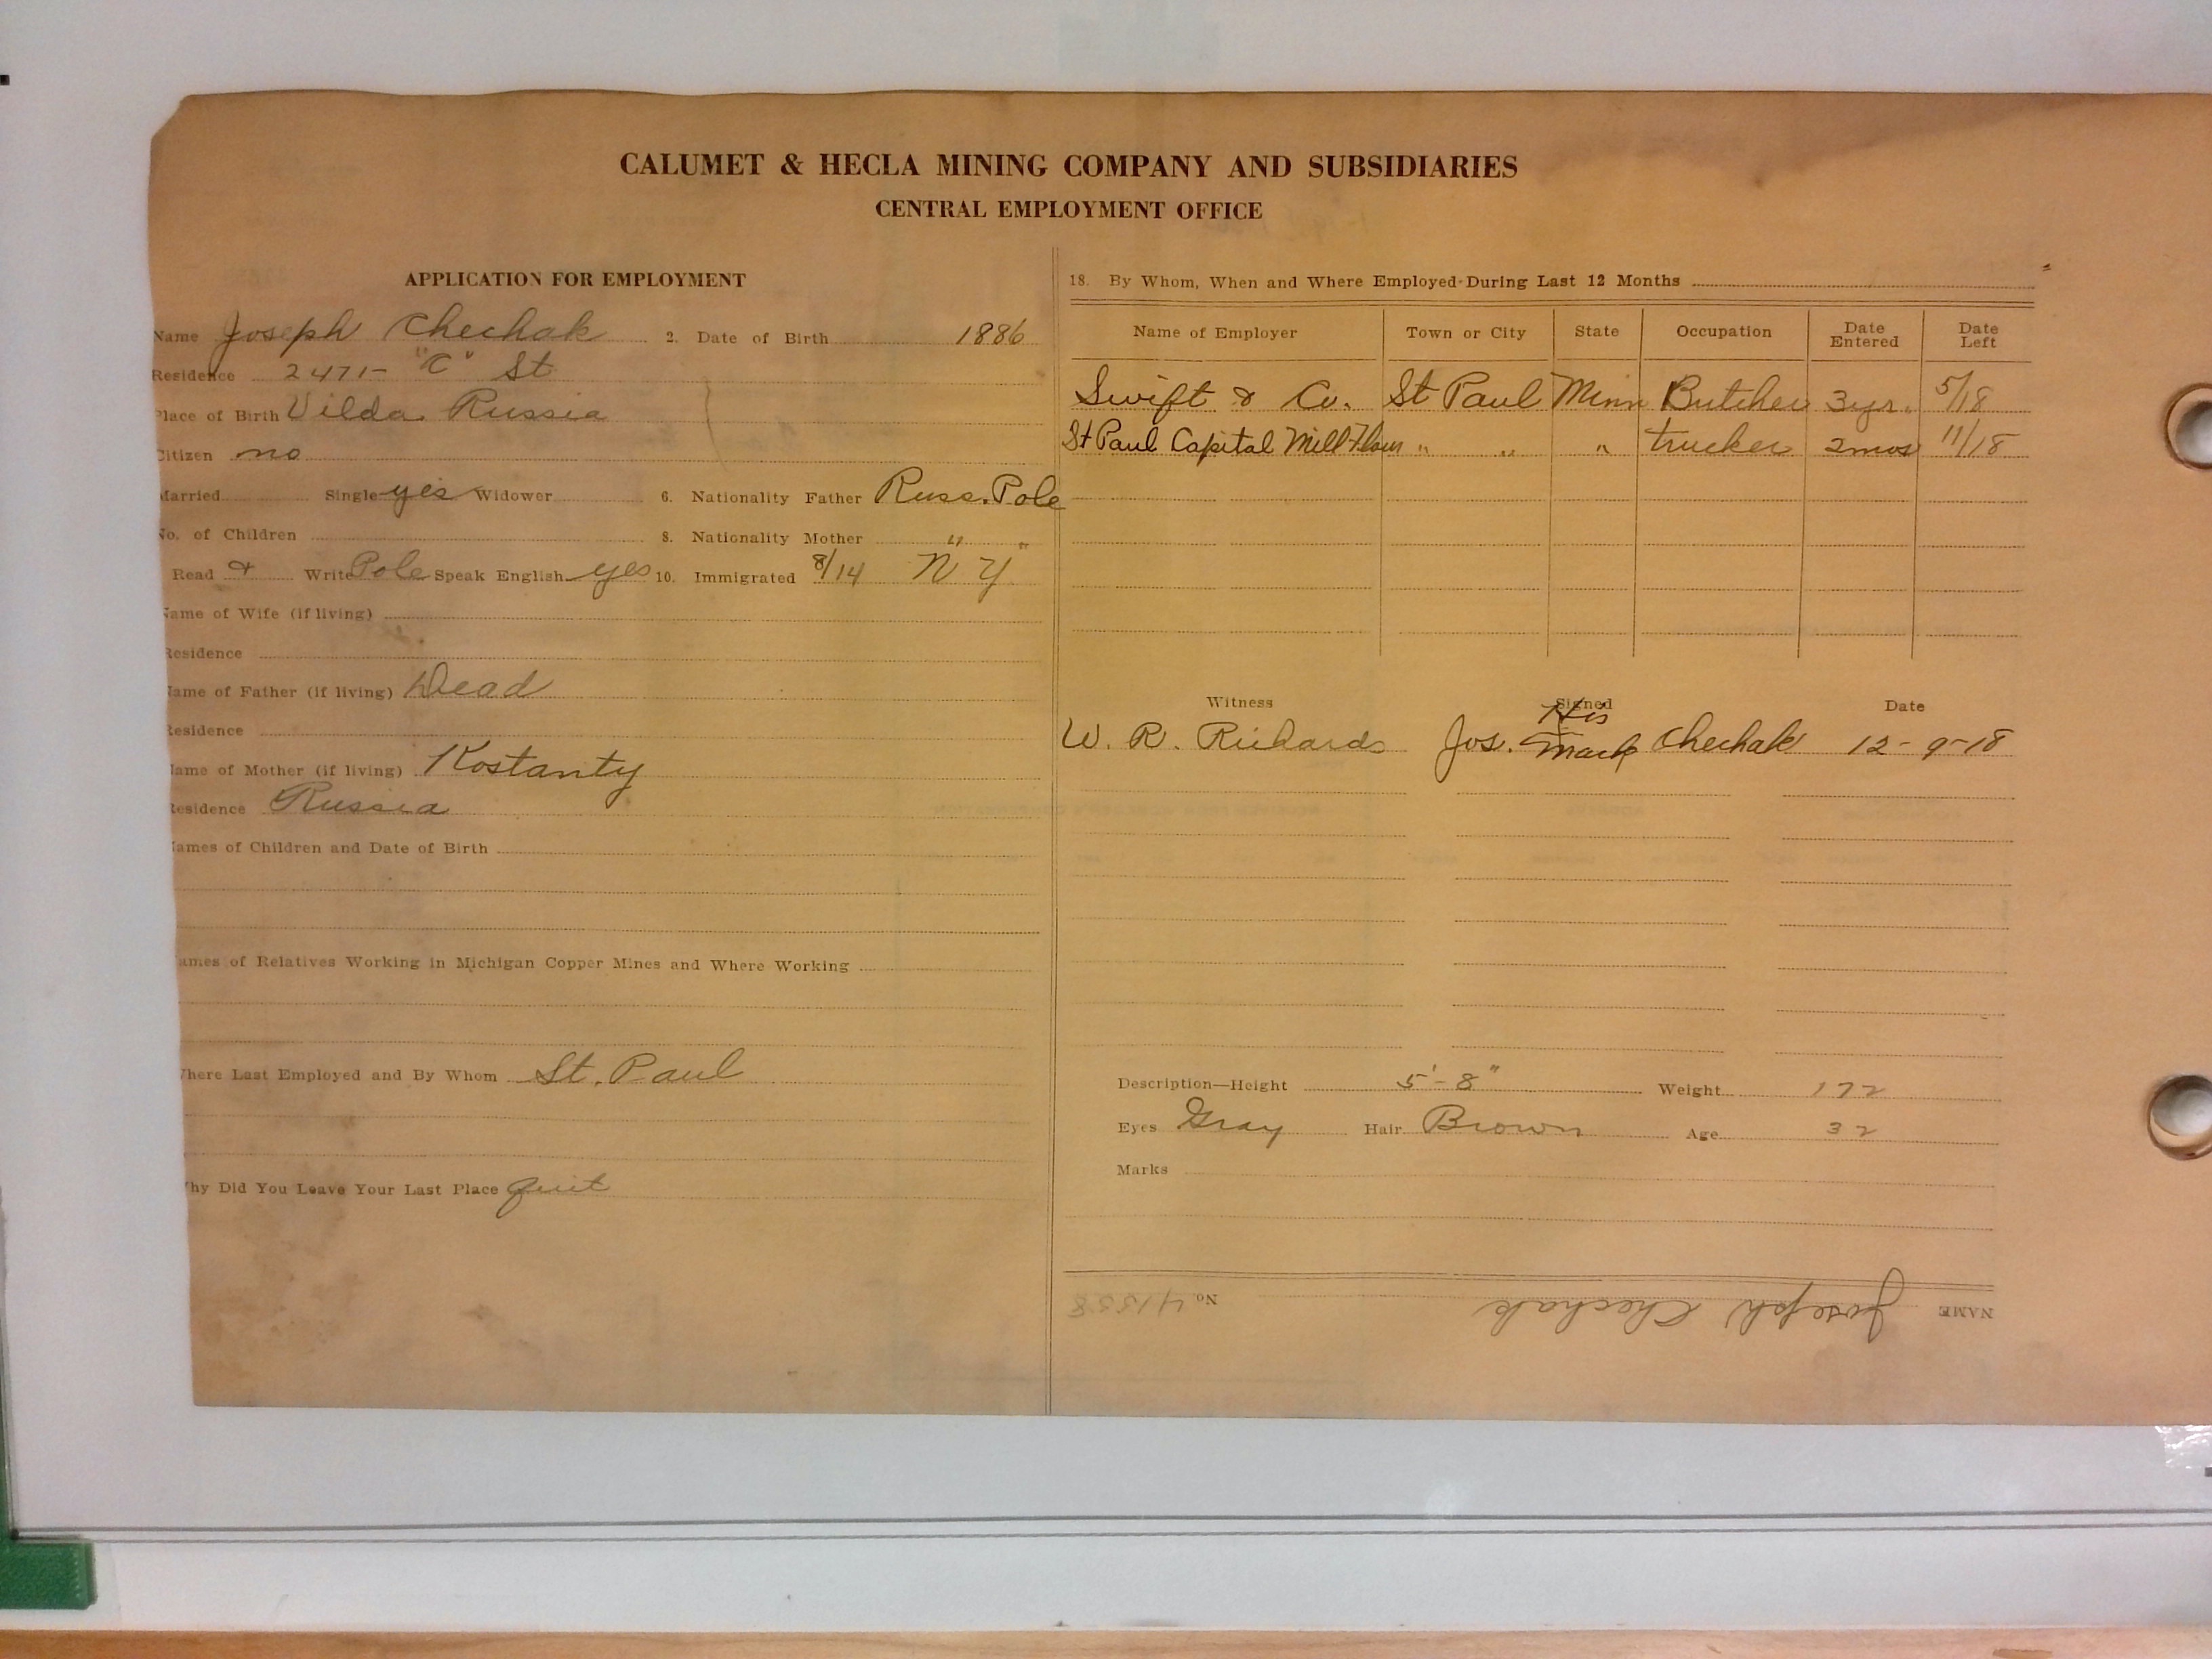 CALUMET & HECLA MINING COMPANY AND SUBSIDIARIES
CENTRAL EMPLOYMENT OFFICE
APPLICATION FOR EMPLOYMENT
Name Joseph Chechak 2. Date of Birth 1886
Residence 2471- "C" St
Place of Birth Vilda Russia
Citizen no
Married Single yes Widower 6. Nationality Father Russ. Pole
No. of Children 8. Nationality Mother " "
Read & Write Pole Speak English yes 10. Immigrated 8/14 N Y
Name of Wife (if living)
Residence
Name of Father (if living) Dead
Residence
Name of Mother (if living) Kostanty
Residence Russia
Names of Children and Date of Birth
ames of Relatives Working in Michigan Copper Mines and Where Working
here Last Employed and By Whom St. Paul
hy Did You Leave Your Last Place quit
18. By Whom, When and Where Employed During Last 12 Months
Name of Employer Town or City State Occupation Date Entered Date Left
Swift & Co. St Paul Minn Butcher 3yr. 5/18
St Paul Capital Mill Flour " " " trucker 2mos 11/18
Witness Signed Date
W. R. Richards Jos. His mark Chechak 12-9-18
Description—Height 5'-8" Weight 172
Eyes Gray Hair Brown Age 32
Marks
NAME Joseph Chechak No.